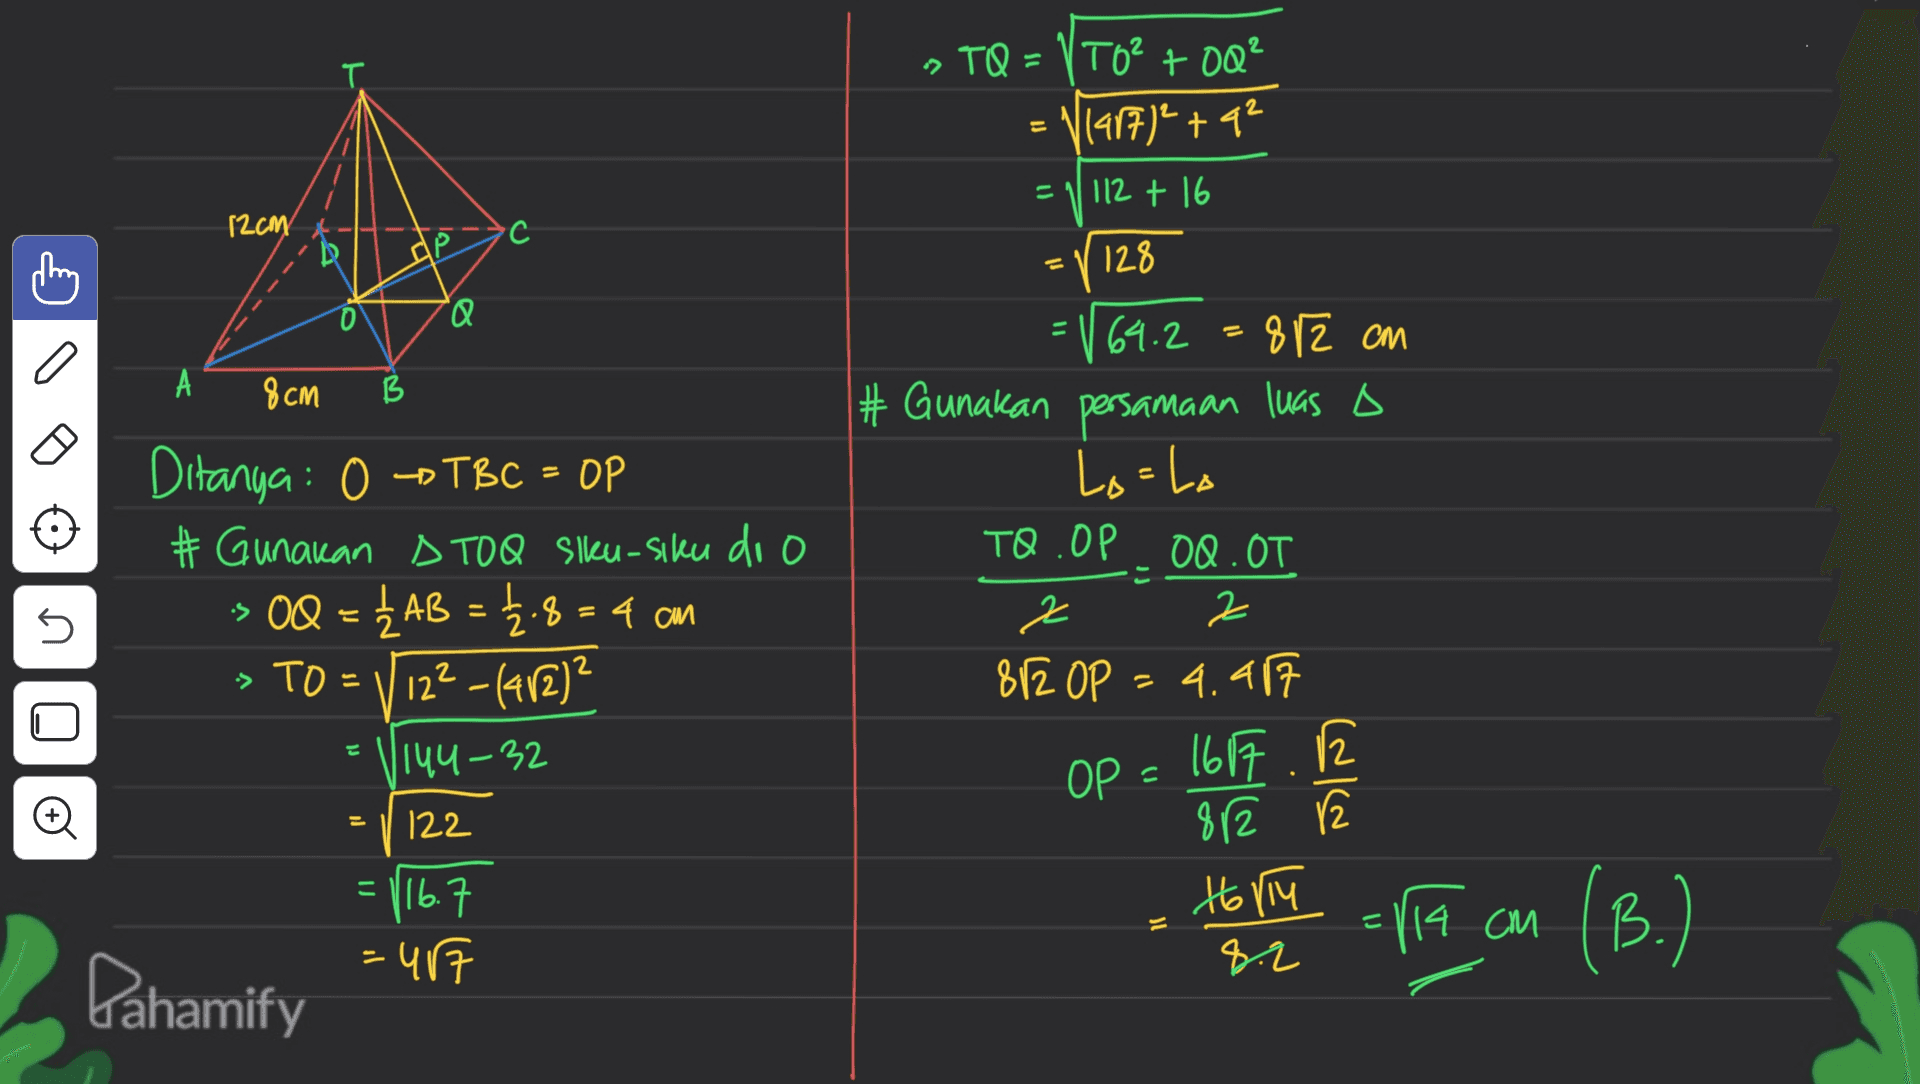 T
12cm
D
P
C
O
Q
A
8cm
B
Ditanya: O → TBC = OP
# Gunakan Δ TOQ siku-siku di O
> OQ = 1/2 AB = 1/2 . 8 = 4 cm
> TO = √12² - (4√2)²
= √144 - 32
= √122
= √16.7
= 4√7
Pahamify
> TQ = √TO² + OQ²
= √(4√7)² + 4²
= √112 + 16
= √128
= √64.2 = 8√2 cm
# Gunakan persamaan luas Δ
LΔ = LΔ
TQ . OP / 2 = OQ . OT / 2
8√2 OP = 4. 4√7
OP = 16√7 / 8√2 . √2 / √2
= 16√14 / 8.2 = √14 cm (B.)